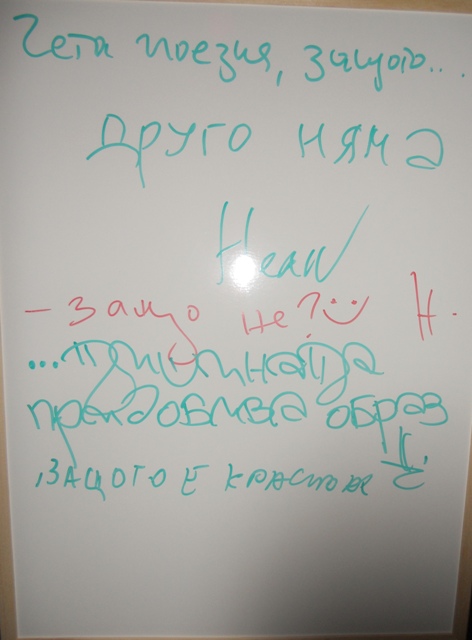 Чета поезия, защото...
друго няма
- защо не? Н.
...тишината
придобива образ
,защото е красива